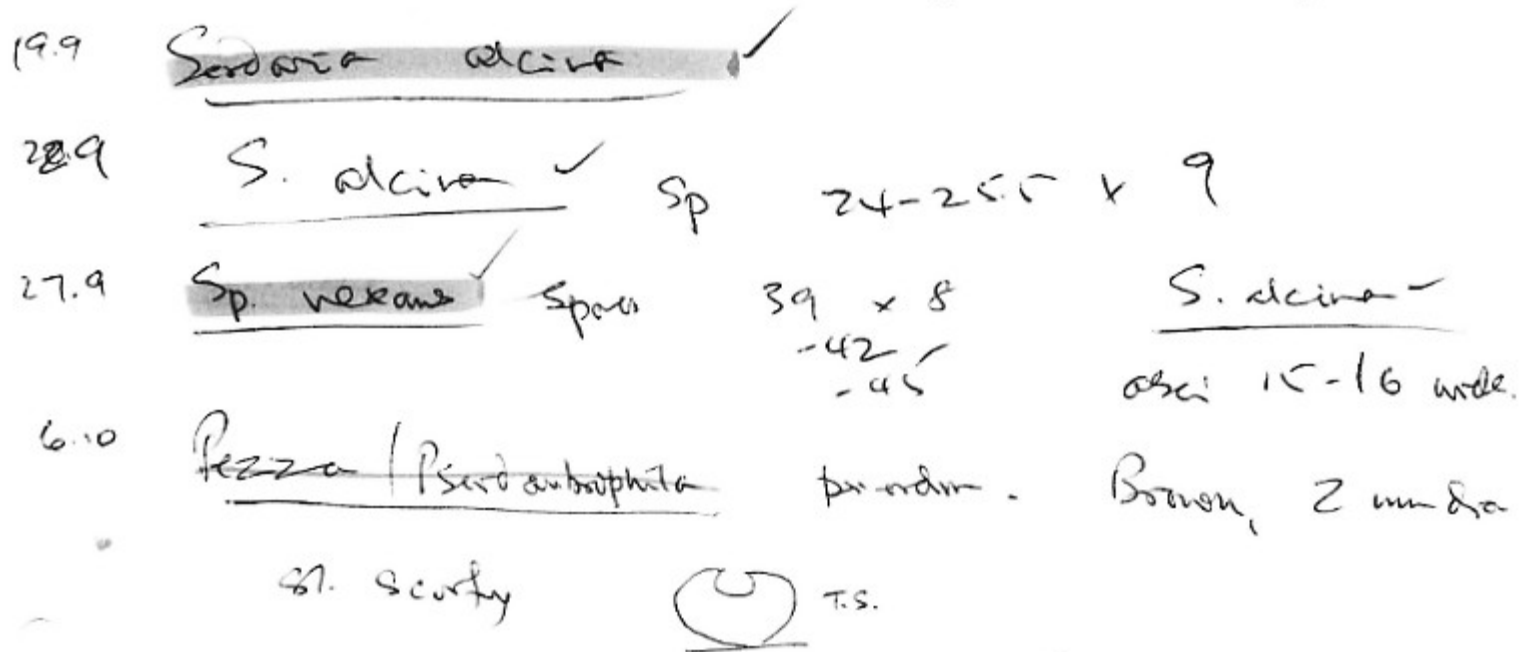 19.9 Sordaria alcina ✓
22.9 S. alcina ✓ Sp 24-25.5 x 9
27.9 Sp. vexans ✓ Spores 39 x 8 S. alcina
-42
-45 asci 15-16 wide.
6.10 Peziza / Pseudombrophila primordium. Brown, 2 mm dia
sl. scurfy T.S.